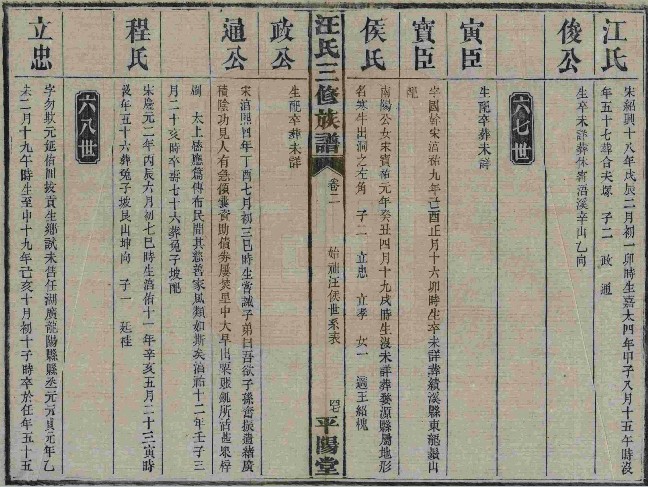 江氏
宋紹興十八年戊辰二月初一卯時生嘉太四年甲子八月十五午時沒
年五十七葬合夫塚 子二 政 通
俊公
生卒未詳葬休甯浯溪辛山乙向
六七世
寅臣
生配卒葬未詳
寶臣
字國幹宋淳祐九年己酉正月十六卯時生卒未詳葬績溪縣東龍鬚山
配
侯氏
南陽公女宋寶祐元年癸丑四月十九戌時生沒未詳葬婺源縣屬地形
名寒牛出洞之左角 子二 立忠 立孝 女一 適王紹槐
汪氏三修族譜
卷二
始祖汪侯世系表
平陽堂
政公
生配卒葬未詳
通公
宋淳熙四年丁酉七月初三巳時生嘗誡子弟曰吾欲子孫奮振遺緒廣
積陰功見人有急傾囊資助債券屢焚里中大旱出粟賑飢所活甚眾梓
刷 太上感應篇傳布民間其慈善家風類如斯矣淳祐十二年壬子三
月二十亥時卒壽七十六葬兔子坡配
程氏
宋慶元二年丙辰六月初七巳時生淳祐十一年辛亥五月二十三寅時
沒年五十六葬兔子坡艮山坤向 子一 延桂
六八世
立忠
字勿欺元延佑間拔貢生鄉試未售任湖廣龍陽縣縣丞元元貞元年乙
未二月十九午時生至中十九年己亥十月初十子時卒於任年五十五